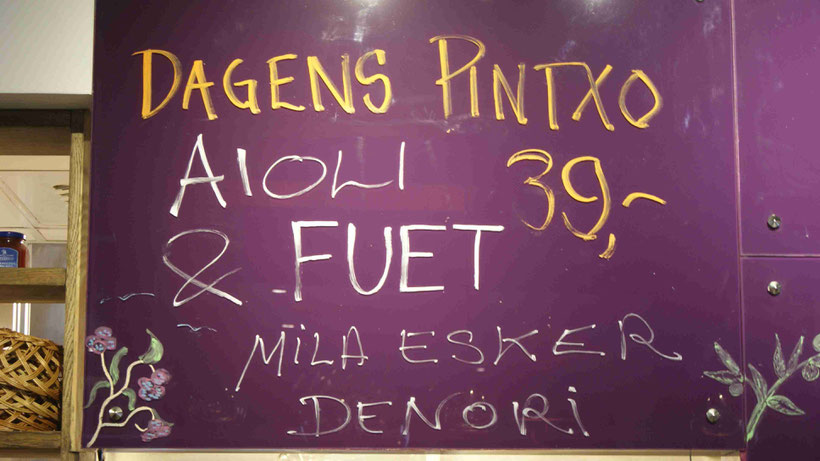 DAGENS PINTXO
AIOLI 39,-
& FUET
MILA ESKER
DENORI